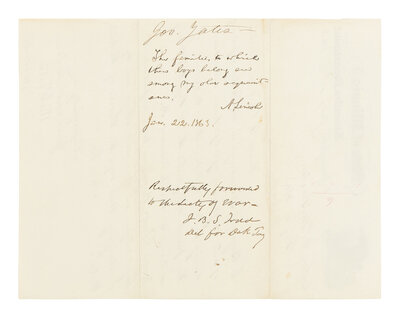 Gov. Yates —
The families to which
these boys belong are
among my old acquaint
ances.
A. Lincoln
Jan. 22. 1863.
Respectfully forwarded
to the Secty of War —
J. B. S. Todd
Del for Dak Ty